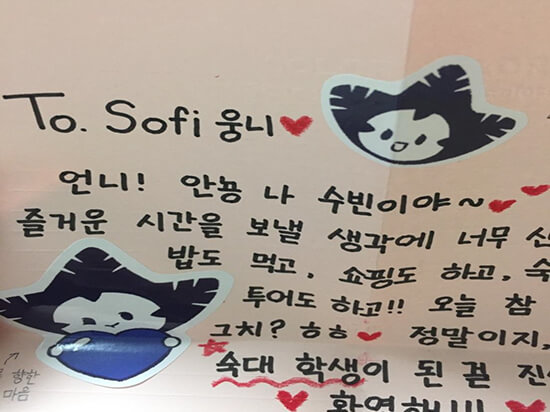 To. Sofi 웅니♥
언니! 안뇽 나 수빈이야~♥♥
즐거운 시간을 보낼 생각에 너무 신
밥도 먹고, 쇼핑도 하고, 숙
투어도 하고!! 오늘 참
그치? ㅎㅎ♥ 정말이지,
숙대 학생이 된 걸 진
향한
마음
♥ 환영해!!! ♥